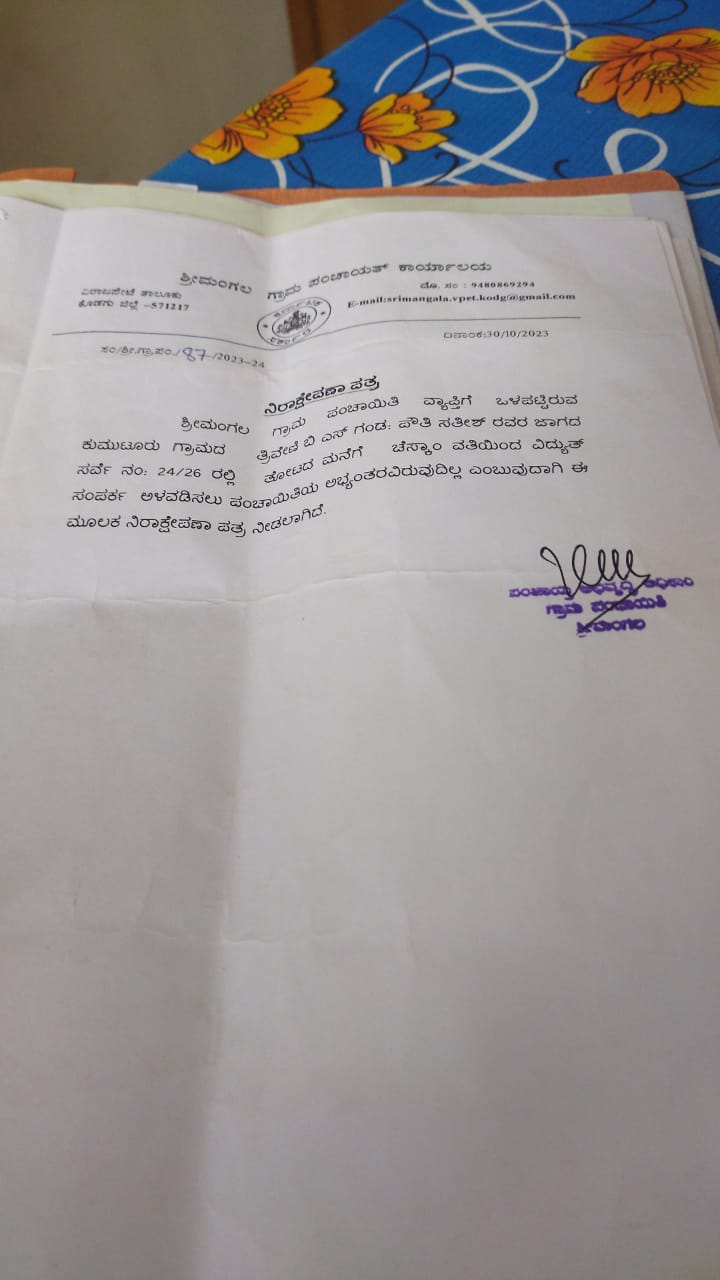 ಶ್ರೀಮಂಗಲ ಗ್ರಾಮ ಪಂಚಾಯತ್ ಕಾರ್ಯಾಲಯ
ವಿರಾಜಪೇಟೆ ತಾಲೂಕು
ಮೊ. ಸಂ : 9480869294
ಕೊಡಗು ಜಿಲ್ಲೆ -571217
E-mail:srimangala.vpet.kodg@gmail.com
ಸಂ/ಶ್ರೀ.ಗ್ರಾ.ಪಂ./87/2023-24
ದಿನಾಂಕ:30/10/2023
ನಿರಾಕ್ಷೇಪಣಾ ಪತ್ರ
ಶ್ರೀಮಂಗಲ ಗ್ರಾಮ ಪಂಚಾಯಿತಿ ವ್ಯಾಪ್ತಿಗೆ ಒಳಪಟ್ಟಿರುವ
ಕುಮುಟೂರು ಗ್ರಾಮದ ತ್ರಿವೇಣಿ ಬಿ ಎಸ್ ಗಂಡ: ಪೌತಿ ಸತೀಶ್ ರವರ ಜಾಗದ
ಸರ್ವೆ ನಂ: 24/26 ರಲ್ಲಿ ತೋಟದ ಮನೆಗೆ ಚೆಸ್ಕಾಂ ವತಿಯಿಂದ ವಿದ್ಯುತ್
ಸಂಪರ್ಕ ಅಳವಡಿಸಲು ಪಂಚಾಯಿತಿಯ ಅಭ್ಯಂತರವಿರುವುದಿಲ್ಲ ಎಂಬುವುದಾಗಿ ಈ
ಮೂಲಕ ನಿರಾಕ್ಷೇಪಣಾ ಪತ್ರ ನೀಡಲಾಗಿದೆ.
ಪಂಚಾಯ್ತಿ ಅಭಿವೃದ್ಧಿ
ಗ್ರಾಮ ಪಂಚಾಯಿತಿ
ಶ್ರೀಮಂಗಲ